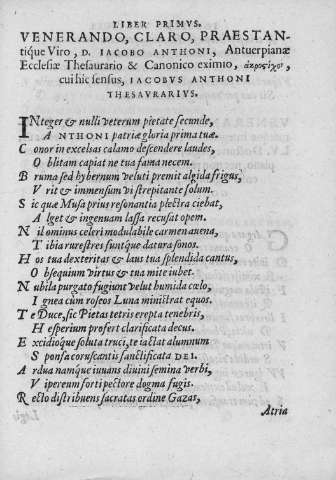 LIBER PRIMVS.
VENERANDO, CLARO, PRAESTAN-
tique Viro, D. IACOBO ANTHONI, Antuerpianæ
Ecclesiæ Thesaurario & Canonico eximio, ἀκροςίχοι,
cui hic sensus, IACOBVS ANTHONI
THESAVRARIVS.
INteger & nulli veterum pietate secunde,
A NTHONI patriæ gloria prima tuæ.
C onor in excelsas calamo descendere laudes,
O blitam capiat ne tua fama necem.
B ruma sed hybernum veluti premit algida frigus,
V rit & immensum vi strepitante solum.
S ic quæ Musa prius resonantia plectra ciebat,
A lget & ingenuam lassa recusat opem.
N il ominus celeri modulabile carmen auena,
T ibia rurestres funtque datura sonos.
H os tua dexteritas & laus tua splendida cantus,
O bsequium virtus & tua mite iubet.
N ubila purgato fugiunt velut humida cœlo,
I gnea cum roseos Luna ministrat equos.
T e Duce, sic Pietas tetris erepta tenebris,
H esperium profert clarificata decus.
E xcidioque soluta truci, te iactat alumnum
S ponsa coruscantis sanctificata DEI.
A rdua namque iuuans diuini semina verbi,
V ipereum forti pectore dogma fugis.
R ecto distribuens sacratas ordine Gazas,
Atria